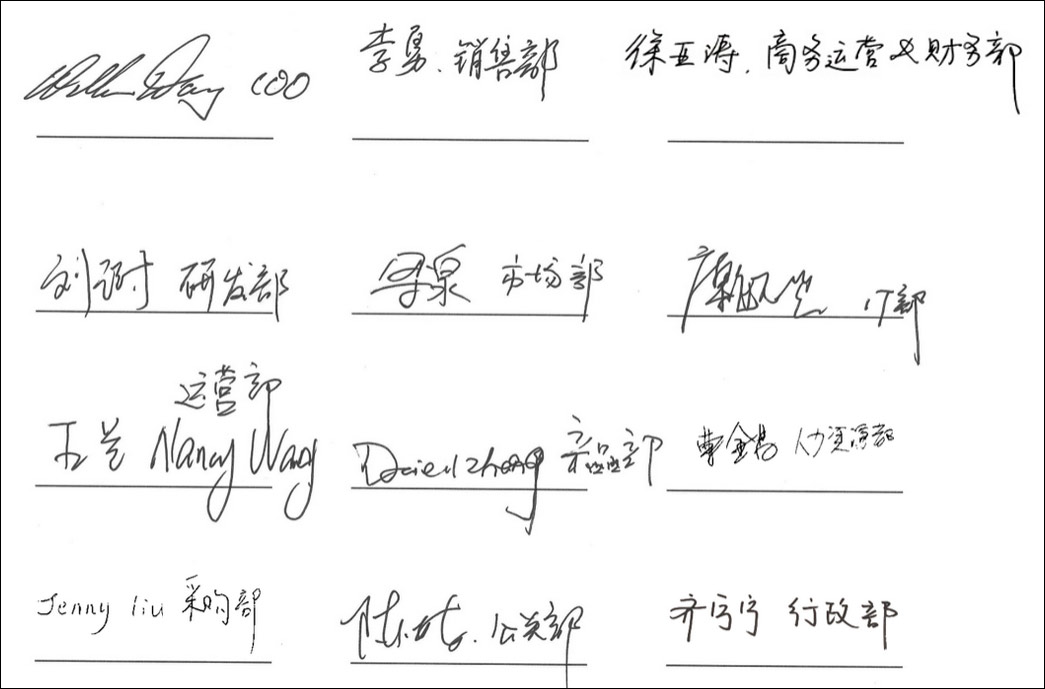 COO
李勇、销售部
徐亚涛、商务运营及财务部
刘 研发部
泉 市场部
廖 IT部
运营部
王兰 Nancy Wang
Zhang 产品部
曹金易 人力资源部
Jenny liu 采购部
陈 公关部
齐宁宁 行政部